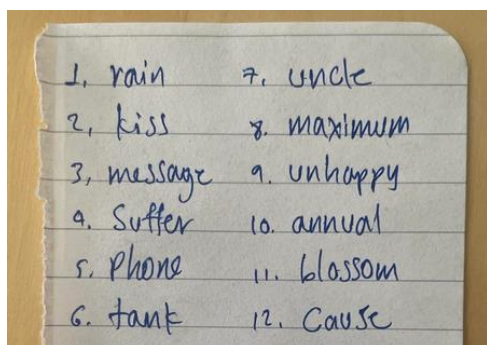 1. rain
2, kiss
3, message
4. Suffer
5. phone
6. tank
7. uncle
8. maximum
9. unhappy
10. annual
11. blossom
12. Cause